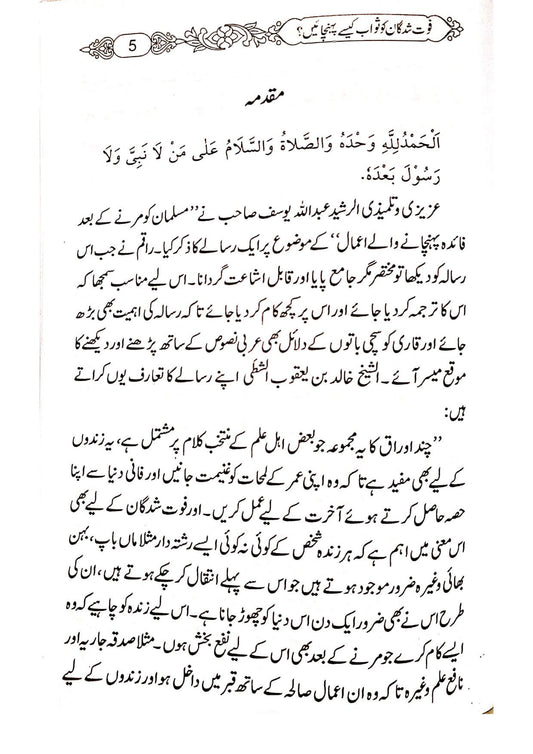 فوت شدگان کو ثواب کیسے پہنچائیں؟
5
مقدمہ
اَلْحَمْدُلِلّٰهِ وَحْدَهٗ وَالصَّلَاةُ وَالسَّلَامُ عَلٰى مَنْ لَا نَبِىَّ وَلَا
رَسُوْلَ بَعْدَهٗ.
عزیزی و تلمیذی الرشید عبداللہ یوسف صاحب نے ’’مسلمان کو مرنے کے بعد
فائدہ پہنچانے والے اعمال‘‘ کے موضوع پر ایک رسالے کا ذکر کیا۔ راقم نے جب اس
رسالہ کو دیکھا تو مختصر مگر جامع پایا اور قابل اشاعت گردانا۔ اس لیے مناسب سمجھا کہ
اس کا ترجمہ کر دیا جائے اور اس پر کچھ کام کر دیا جائے تاکہ رسالہ کی اہمیت بھی بڑھ
جائے اور قاری کو سچی باتوں کے دلائل بھی عربی نصوص کے ساتھ پڑھنے اور دیکھنے کا
موقع میسر آئے۔ الشیخ خالد بن یعقوب الشطّی اپنے رسالے کا تعارف یوں کراتے
ہیں:
’’چند اوراق کا یہ مجموعہ جو بعض اہل علم کے منتخب کلام پر مشتمل ہے، یہ زندوں
کے لیے بھی مفید ہے تاکہ وہ اپنی عمر کے لمحات کو غنیمت جانیں اور فانی دنیا سے اپنا
حصہ حاصل کرتے ہوئے آخرت کے لیے عمل کریں۔ اور فوت شدگان کے لیے بھی
اس معنی میں اہم ہے کہ ہر زندہ شخص کے کوئی نہ کوئی ایسے رشتہ دار مثلا ماں باپ، بہن
بھائی وغیرہ ضرور موجود ہوتے ہیں جو اس سے پہلے انتقال کر چکے ہوتے ہیں، ان کی
طرح اس نے بھی ضرور ایک دن اس دنیا کو چھوڑ جانا ہے۔ اس لیے زندہ کو چاہیے کہ وہ
ایسے کام کرے جو مرنے کے بعد بھی اس کے لیے نفع بخش ہوں۔ مثلا صدقہ جاریہ اور
نافع علم وغیرہ تاکہ وہ ان اعمال صالحہ کے ساتھ قبر میں داخل ہو اور زندوں کے لیے